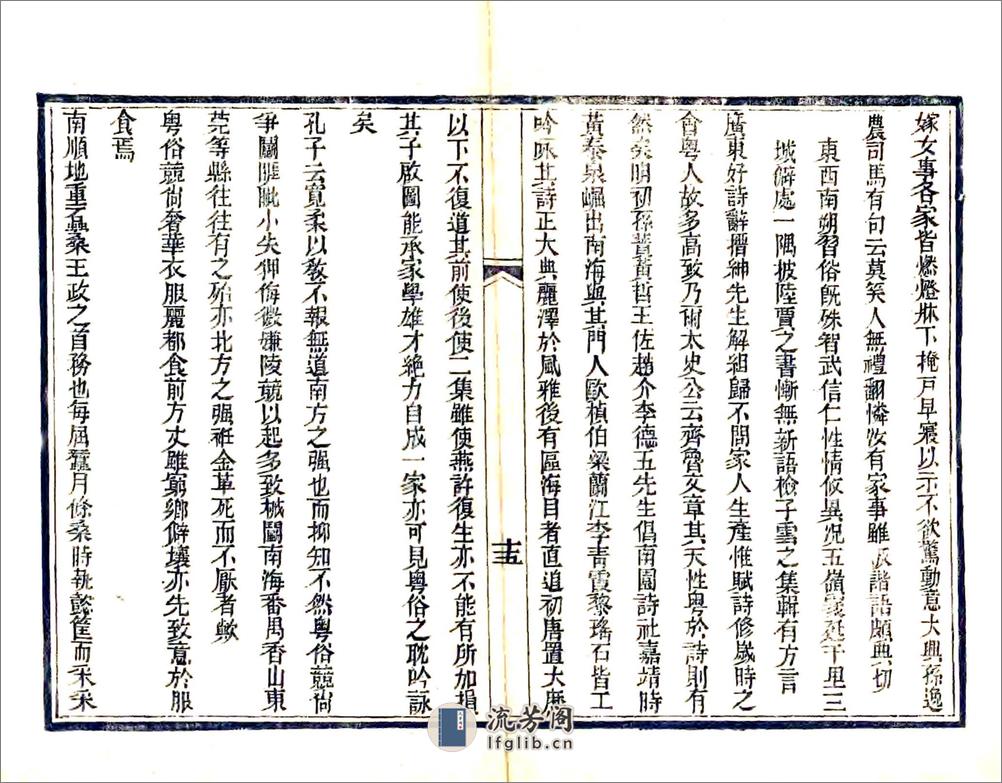 嫁女事各家皆燃燈牀下掩戸早寢以示不欲驚動意大興孫逸
農司馬有句云莫笑人無禮翻憐汝有家事雖諧語頗典切
東西南朔習俗旣殊智武信仁性情攸異況五嶺袤延千里三
城僻處一隅披陸賈之書慚無新語檢子雲之集輯有方言
廣東好詩辭搢紳先生解組歸不問家人生產惟賦詩修歲時之
會粤人故多高致乃爾太史公云齊魯文章其天性粤於詩則有
然矣明初孫蕡黃哲王佐趙介李德五先生倡南園詩社嘉靖時
黃泰泉崛出南海與其門人歐楨伯梁蘭江李青霞黎瑤石皆工
吟咏其詩正大典麗澤於風雅後有區海目者直追初唐置大厯
十五
以下不復道其前使後使二集雖使燕許復生亦不能有所加損
其子啟圖能承家學雄才絶力自成一家亦可見粤俗之耽吟詠
矣
孔子云寬柔以敎不報無道南方之强也而抑知不然粤俗競尙
爭鬭睚眦小失狎侮微嫌陵競以起多致械鬭南海番禺香山東
莞等縣往往有之殆亦北方之强衽金革死而不厭者歟
粤俗競尙奢華衣服麗都食前方丈雖窮鄉僻壤亦先致意於服
食焉
南順地重蠶桑王政之首務也每屆蠶月條桑時執懿筐而采采
流芳阁
lfglib.cn